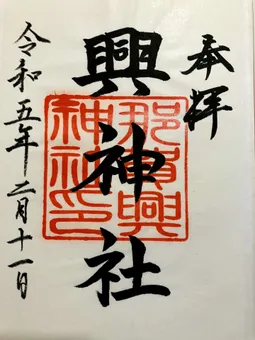 奉拝
興神社
那賀興
神社印
令和五年二月十一日